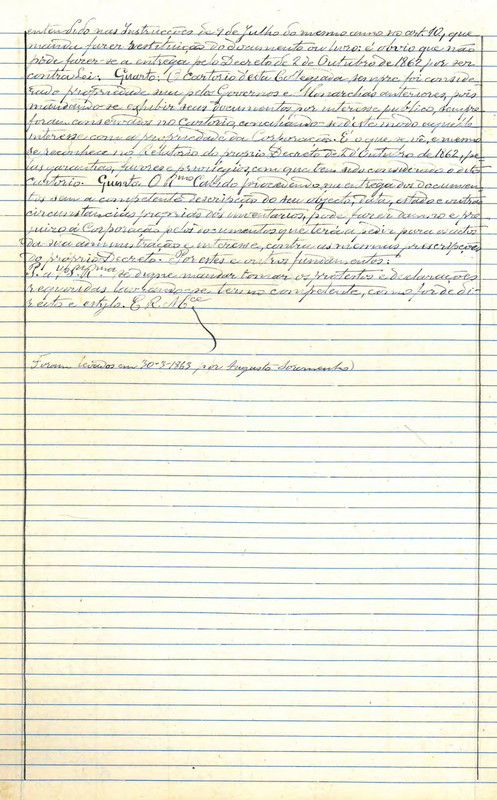 entendido nas Instrucções de 9 de Julho do mesmo anno no art. 10, que
manda fazer restituição do documento ou livro: é obvio que não
póde fazer-se a entrega pelo Decreto de 2 de Outubro de 1862, por ser
contra lei: Quarto: O Cartorio desta Collegiada sempre foi conside-
rado propriedade sua pelos Governos e Monarchas anteriores, pois
mandando-se exhibir seus documentos por interesse publico, sempre
foram conservados no Cartorio, conciliando-se deste modo aquelle
interesse com a propriedade da Corporação. É o que se vê, e mesmo
se reconhece no Relatorio do proprio Decreto de 2 d'Outubro de 1862, pe-
las garantias, favores e privilegios, com que tem sido considerado o dito
cartorio: Quinto. O Rmo Cabido procedendo na entrega dos Documen-
tos sem a competente descripção do seu objecto, data, estado e outras
circunstancias proprias dos inventarios, póde fazer damno e pre-
juizo á Corporação pelos documentos que terá a pedir para os actos
da sua administração e interesse, contra as mesmas prescripções
do proprio Decreto. Por estes e outros fundamentos:
P. a V. S. se digne mandar tomar os protestos e declarações
requeridas lavrando-se termo competente, como fôr de di-
reito e estylo. E. R. Mce
Foram levados em 30-3-1863, por Augusto Soromenho)